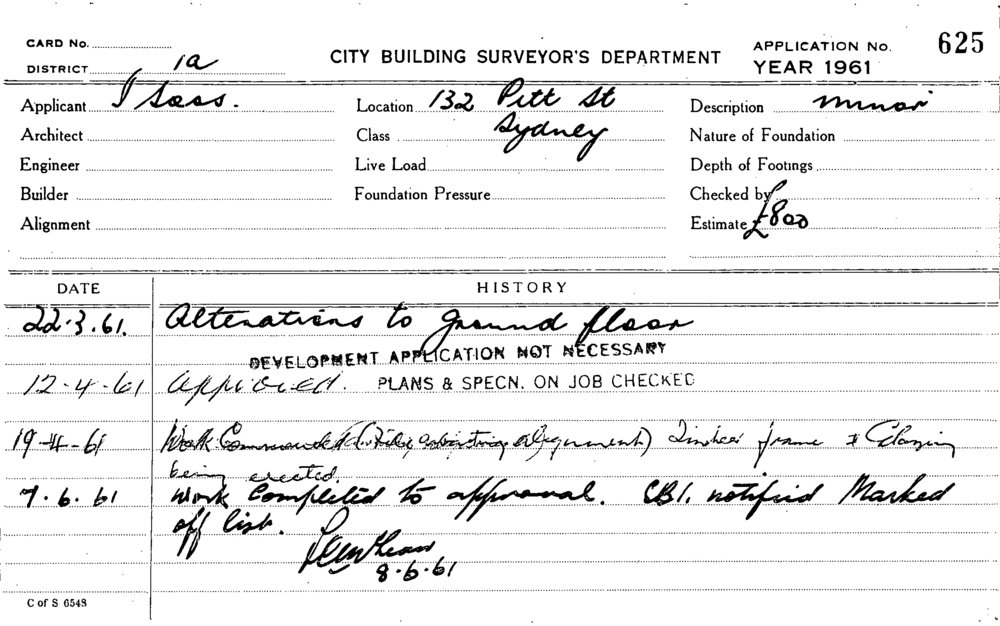 CARD No.
DISTRICT 1a
CITY BUILDING SURVEYOR'S DEPARTMENT
APPLICATION No. 625
YEAR 1961
Applicant I Sass. Location 132 Pitt St Description minor
Architect Class Sydney Nature of Foundation
Engineer Live Load Depth of Footings
Builder Foundation Pressure Checked by
Alignment Estimate £800
DATE HISTORY
22.3.61. Alterations to ground floor
DEVELOPMENT APPLICATION NOT NECESSARY
12-4-61 Approved. PLANS & SPECN. ON JOB CHECKED
19-4-61 Work Commenced alignment) Timber frame & Glazing
being erected.
7.6.61 Work Completed to approval. CBI. notified Marked
off list.
8.6.61
C of S 6548